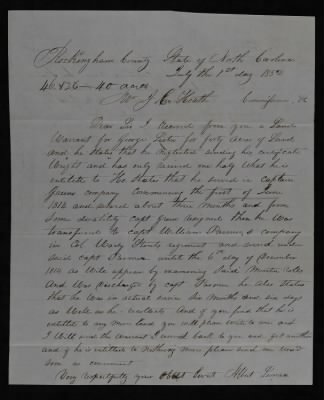 Rockingham County State of North Carolina
July the 1st day 185
46.526 — 40 acres
Mr J. E. Heath Commissioner, &c
Dear Sir I Received from you a Land
Warrant for George for forty Acres of Land
and he States that he Neglected sending his Certificate
Right and has only Received one half What he is
entitle to He States that he served in Captain
company Commencing the first of June
1814 and served about three Months and from
Some disability capt resigned then he Was
transferred to Capt William company
in Col regiment and served under
said capt until the 6th day of December
1814 as Will appear by examining Said Muster Rolls
And Was discharged by capt he also States
that he Was in actual service Six Months and six days
as Well as he recollects And if you find that he is
entitled to any More land you will please write to me and
I Will send the Warrant I have back to you and get another
and if he is entitled to Nothing More please send me word
soon as convenient
Very respectfully your Obt Servt Albert